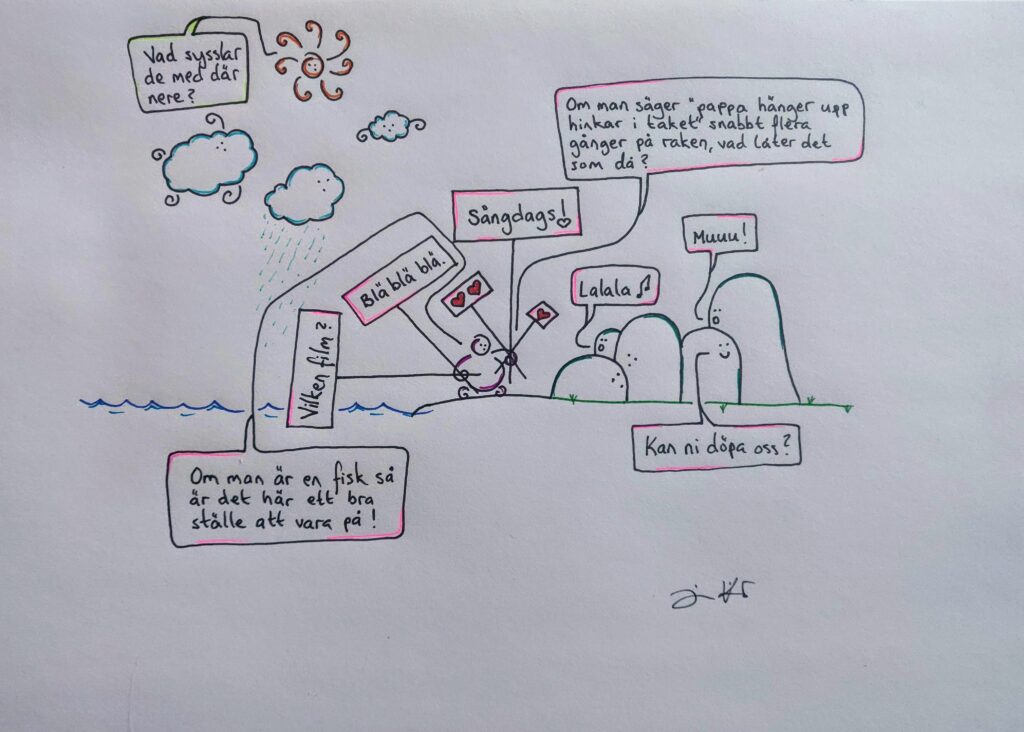 Vad sysslar
de med där
nere?
Om man säger "pappa hänger upp
hinkar i taket" snabbt flera
gånger på raken, vad låter det
som då?
Sångdags!
Muuu!
Blä blä blä.
Lalala
Vilken film?
Kan ni döpa oss?
Om man är en fisk så
är det här ett bra
ställe att vara på!